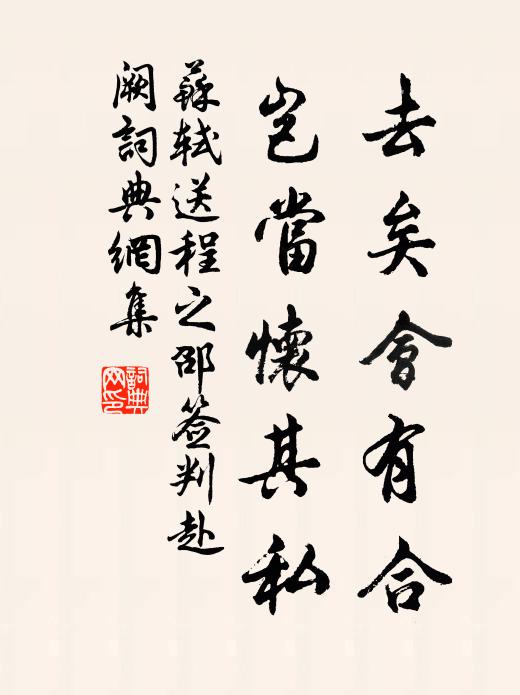 去矣會有合
豈當懷其私
蘇軾送程之邵簽判赴
闕詞典網集
詞典網印